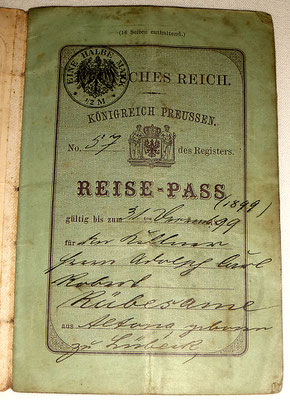 (16 Seiten enthaltend.)
EINE HALBE MARK
1/2 M
CHES REICH.
KÖNIGREICH PREUSSEN.
No. 57 des Registers.
REISE-PASS
(1899)
gültig bis zum 31 99
für den Kellner
Herrn Adolph Carl
Robert
Rübesame
aus Altona, geboren
zu Lübeck,